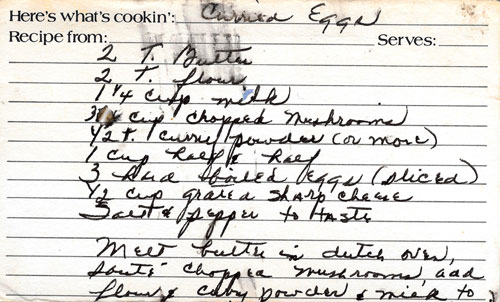 Here's what's cookin': Curried Eggs
Recipe from: Serves:
2 T. Butter
2 T. flour
1 1/4 cup milk
3/4 cup chopped Mushrooms
1/2 t. curry powder (or more)
1 cup half & half
3 Hard boiled Eggs (sliced)
1/2 cup grated sharp cheese
Salt & pepper to taste
Melt butter in dutch oven,
sauté chopped mushrooms, add
flour & curry powder & milk to